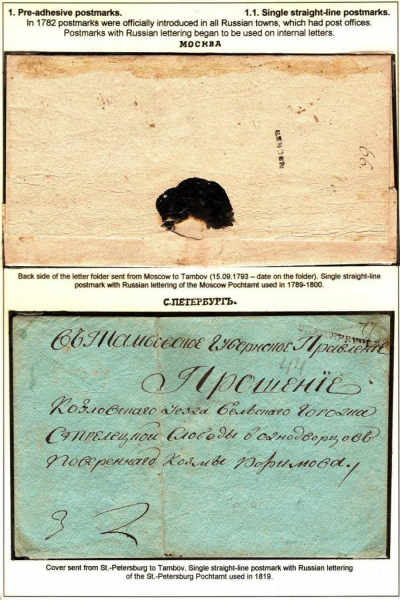 1. Pre-adhesive postmarks. 1.1. Single straight-line postmarks.
In 1782 postmarks were officially introduced in all Russian towns, which had post offices.
Postmarks with Russian lettering began to be used on internal letters.
МОСКВА
МОСКВА
66.
Back side of the letter folder sent from Moscow to Tambov (15.09.1793 – date on the folder). Single straight-line
postmark with Russian lettering of the Moscow Pochtamt used in 1789-1800.
С.ПЕТЕРБУРГЪ.
Въ Тамбовское Губернское Правление
44
Прошение
Козловскаго уезда
Стрелецкой Слободы
повереннаго Козмы
Cover sent from St.-Petersburg to Tambov. Single straight-line postmark with Russian lettering
of the St.-Petersburg Pochtamt used in 1819.